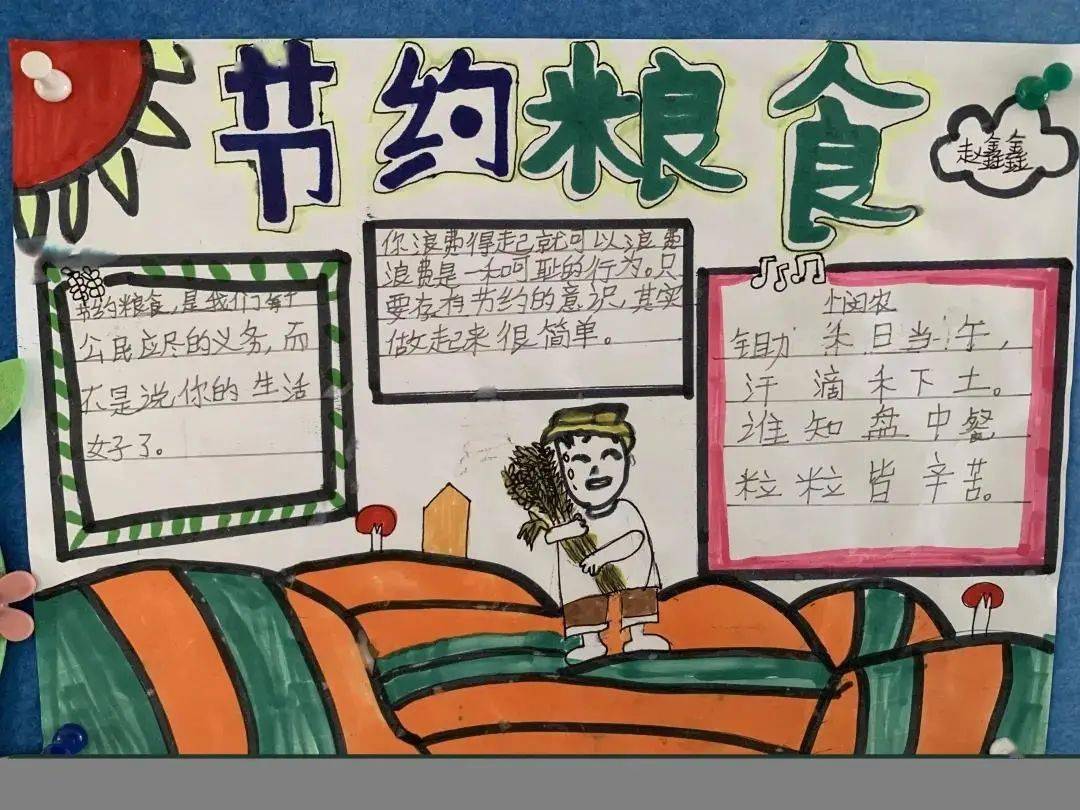 节约粮食
赵鑫鑫
节约粮食,是我们每个
公民应尽的义务,而
不是说你的生活
好了。
你浪费得起就可以浪费
浪费是一种可耻的行为。只
要存有节约的意识,其实
做起来很简单。
悯农
锄禾日当午,
汗滴禾下土。
谁知盘中餐
粒粒皆辛苦。